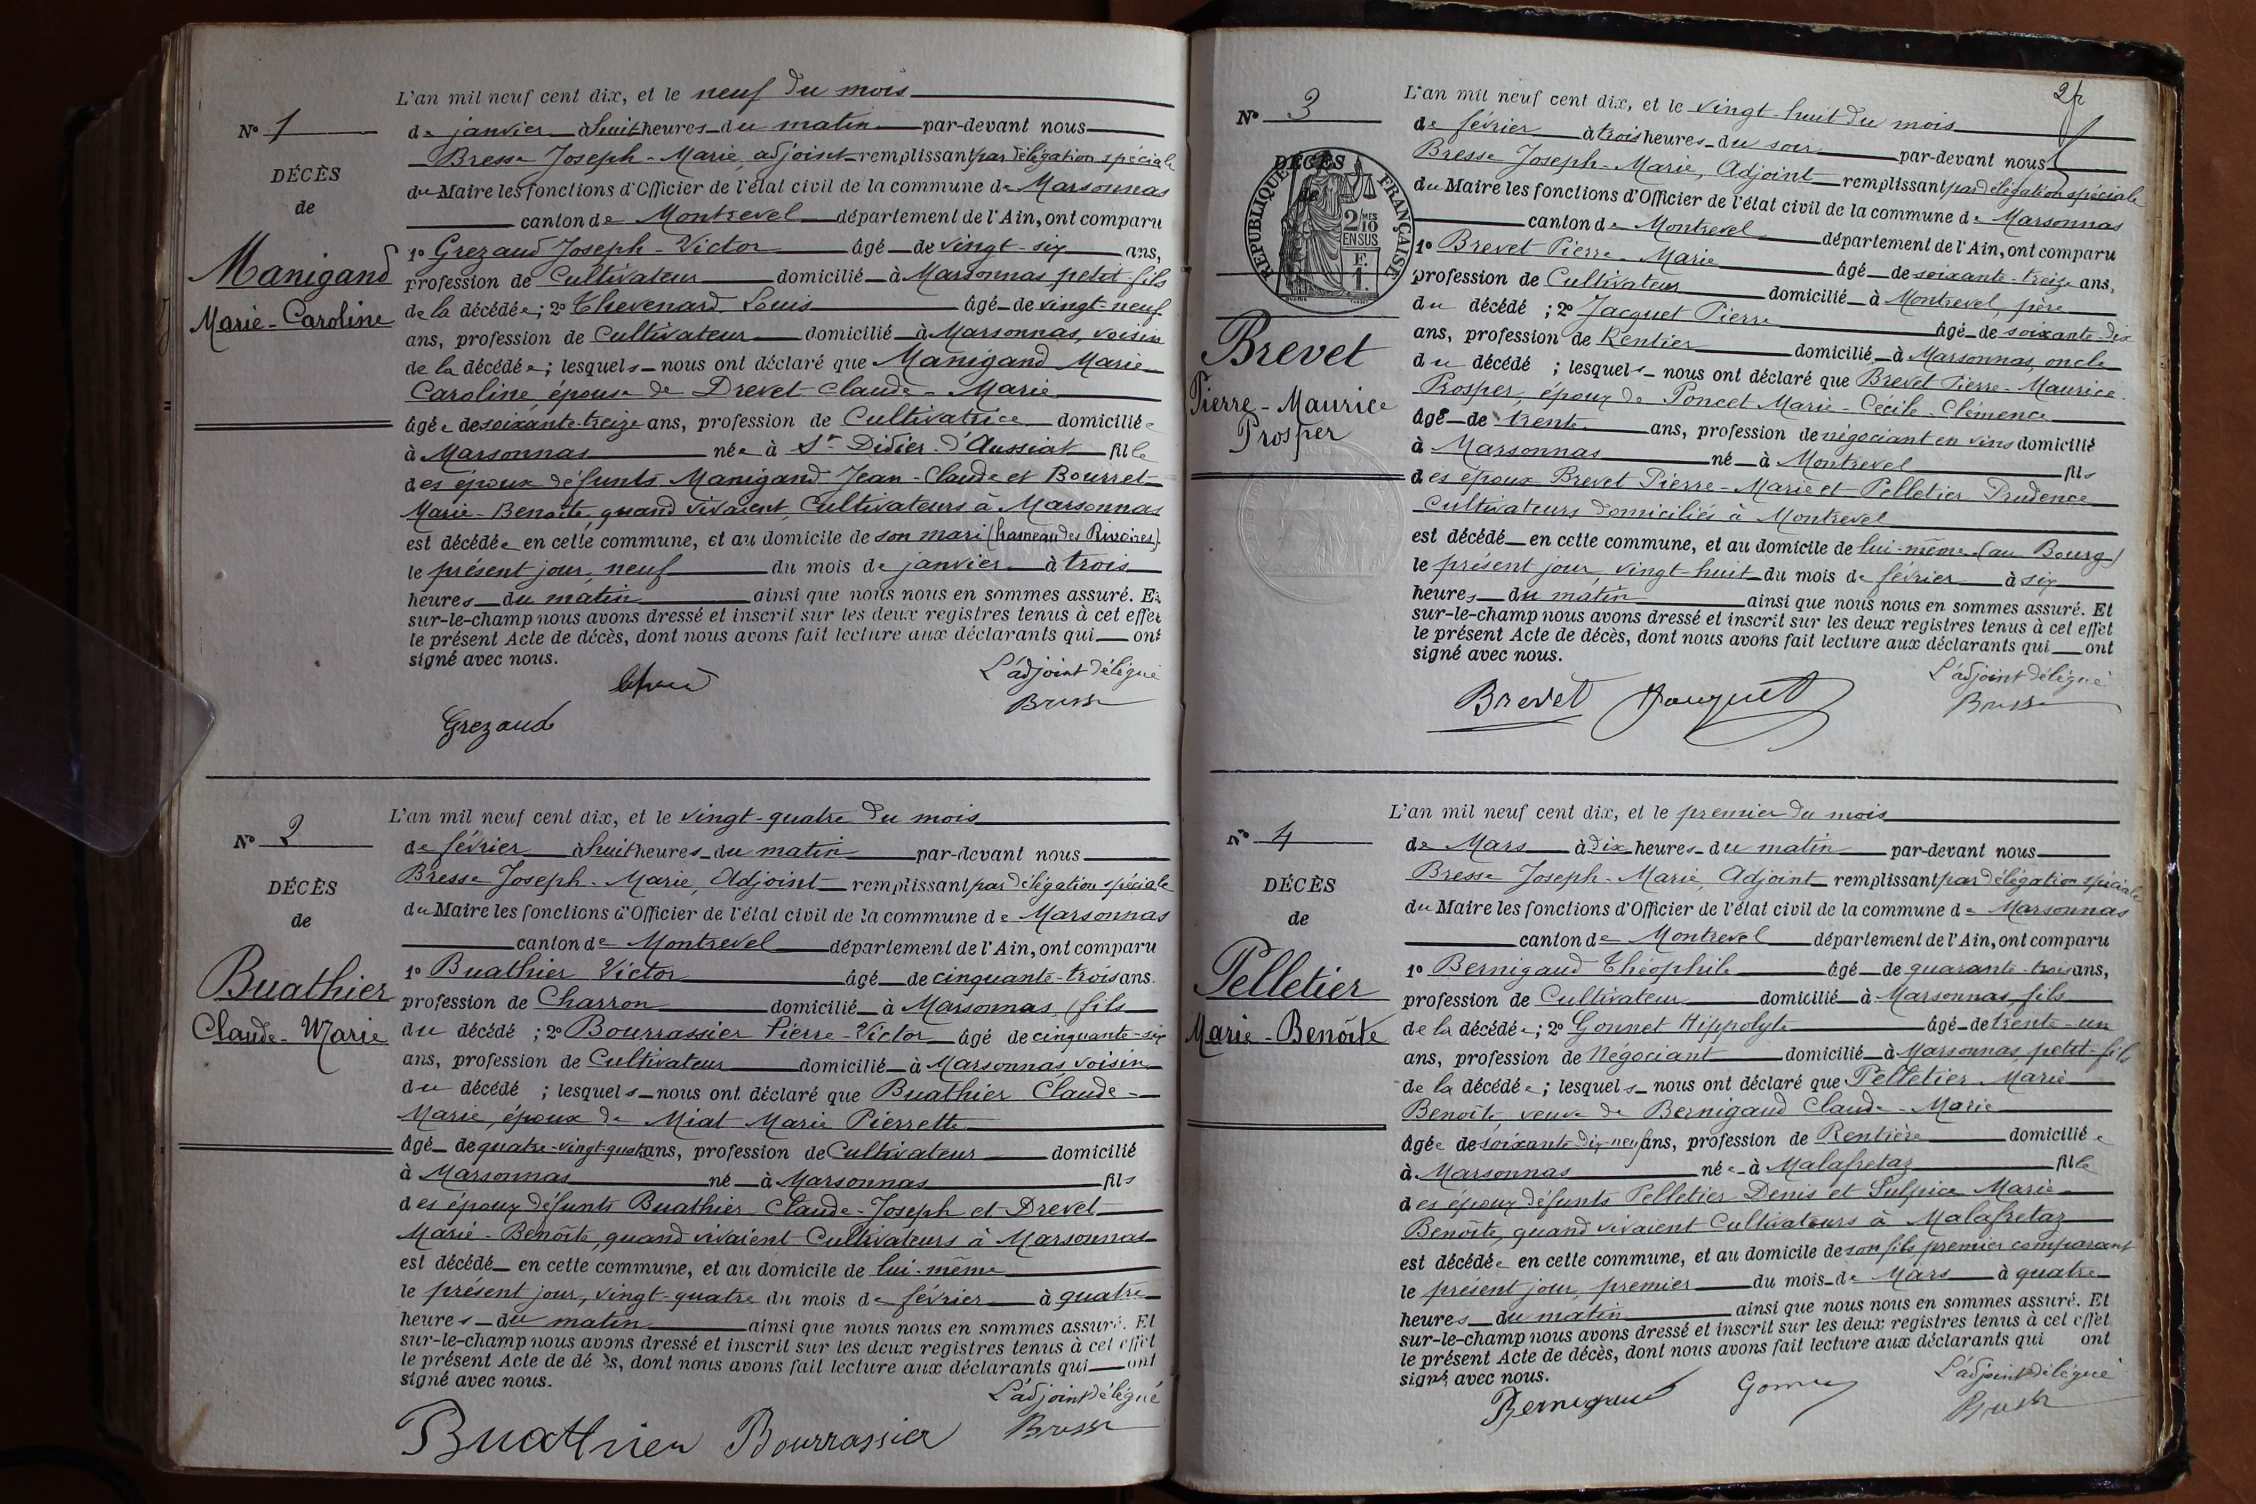 L'an mil neuf cent dix, et le neuf du mois
N° 1
de janvier à huit heures du matin par-devant nous
Bresse Joseph-Marie, adjoint remplissant par délégation spéciale
DÉCÈS
du Maire les fonctions d'Officier de l'état civil de la commune de Marsonnas
de
canton de Montrevel département de l'Ain, ont comparu
Manigand
Marie-Caroline
1° Grezaud Joseph-Victor âgé de vingt-six ans,
profession de Cultivateur domicilié à Marsonnas, petit-fils
de la décédée ; 2° Thevenard Louis âgé de vingt-neuf
ans, profession de Cultivateur domicilié à Marsonnas, voisin
de la décédée ; lesquels nous ont déclaré que Manigand Marie
Caroline, épouse de Drevet Claude-Marie
âgée de soixante-treize ans, profession de Cultivatrice domiciliée
à Marsonnas née à St Didier-d'Aussiat fille
des époux défunts Manigand Jean-Claude et Bourret
Marie-Benoîte, quand vivaient, Cultivateurs à Marsonnas
est décédée en cette commune, et au domicile de son mari (hameau des Rivoires)
le présent jour, neuf du mois de janvier à trois
heures du matin ainsi que nous nous en sommes assuré. Et
sur-le-champ nous avons dressé et inscrit sur les deux registres tenus à cet effet
le présent Acte de décès, dont nous avons fait lecture aux déclarants qui ont
signé avec nous.
L'adjoint délégué
Bresse
Grezaud
L'an mil neuf cent dix, et le vingt-quatre du mois
N° 2
de février à huit heures du matin par-devant nous
Bresse Joseph-Marie, Adjoint remplissant par délégation spéciale
DÉCÈS
du Maire les fonctions d'Officier de l'état civil de la commune de Marsonnas
de
canton de Montrevel département de l'Ain, ont comparu
Buathier
Claude-Marie
1° Buathier Victor âgé de cinquante-trois ans.
profession de Charron domicilié à Marsonnas, fils
du décédé ; 2° Bourrassier Pierre-Victor âgé de cinquante-six
ans, profession de Cultivateur domicilié à Marsonnas, voisin
du décédé ; lesquels nous ont déclaré que Buathier Claude-
Marie, époux de Miat Marie Pierrette
âgé de quatre-vingt-quatre ans, profession de Cultivateur domicilié
à Marsonnas né à Marsonnas fils
des époux défunts Buathier Claude-Joseph et Drevet
Marie-Benoîte, quand vivaient Cultivateurs à Marsonnas
est décédé en cette commune, et au domicile de lui-même
le présent jour, vingt-quatre du mois de février à quatre
heures du matin ainsi que nous nous en sommes assuré. Et
sur-le-champ nous avons dressé et inscrit sur les deux registres tenus à cet effet
le présent Acte de dé ès, dont nous avons fait lecture aux déclarants qui ont
signé avec nous.
L'adjoint délégué
Buathier Bourrassier Bresse
L'an mil neuf cent dix, et le vingt-huit du mois
N° 3
de février à trois heures du soir par-devant nous
Bresse Joseph-Marie, Adjoint remplissant par délégation spéciale
DÉCÈS
de
RÉPUBLIQUE FRANÇAISE
2/10 MES
EN SUS
F.
1.
du Maire les fonctions d'Officier de l'état civil de la commune de Marsonnas
canton de Montrevel département de l'Ain, ont comparu
1° Brevet Pierre-Marie âgé de soixante-treize ans,
profession de Cultivateur domicilié à Montrevel, père
du décédé ; 2° Jacquet Pierre âgé de soixante-dix
ans, profession de Rentier domicilié à Marsonnas, oncle
Brevet
Pierre-Maurice
Prosper
du décédé ; lesquels nous ont déclaré que Brevet Pierre-Maurice
Prosper, époux de Poncet Marie-Cécile-Clémence
âgé de trente ans, profession de négociant en vins domicilié
à Marsonnas né à Montrevel fils
des époux Brevet Pierre-Marie et Pelletier Prudence
Cultivateurs domiciliés à Montrevel
est décédé en cette commune, et au domicile de lui-même (au Bourg)
le présent jour vingt-huit du mois de février à six
heures du matin ainsi que nous nous en sommes assuré. Et
sur-le-champ nous avons dressé et inscrit sur les deux registres tenus à cet effet
le présent Acte de décès, dont nous avons fait lecture aux déclarants qui ont
signé avec nous.
L'adjoint délégué
Brevet Jacquet Bresse
L'an mil neuf cent dix, et le premier du mois
N° 4
de Mars à dix heures du matin par-devant nous
Bresse Joseph-Marie, Adjoint remplissant par délégation spéciale
DÉCÈS
du Maire les fonctions d'Officier de l'état civil de la commune de Marsonnas
de
canton de Montrevel département de l'Ain, ont comparu
Pelletier
Marie-Benoîte
1° Bernigaud Théophile âgé de quarante-trois ans,
profession de Cultivateur domicilié à Marsonnas, fils
de la décédée ; 2° Gonnet Hippolyte âgé de trente-un
ans, profession de Négociant domicilié à Marsonnas petit-fils
de la décédée ; lesquels nous ont déclaré que Pelletier Marie
Benoîte, veuve de Bernigaud Claude-Marie
âgée de soixante-dix-neuf ans, profession de Rentière domiciliée
à Marsonnas née à Malafretaz fille
des époux défunts Pelletier Denis et Sulpice Marie
Benoîte, quand vivaient Cultivateurs à Malafretaz
est décédée en cette commune, et au domicile de son fils premier comparant
le présent jour, premier du mois de Mars à quatre
heures du matin ainsi que nous nous en sommes assuré. Et
sur-le-champ nous avons dressé et inscrit sur les deux registres tenus à cet effet
le présent Acte de décès, dont nous avons fait lecture aux déclarants qui ont
signé avec nous.
L'adjoint délégué
Bernigaud Gonnet Bresse